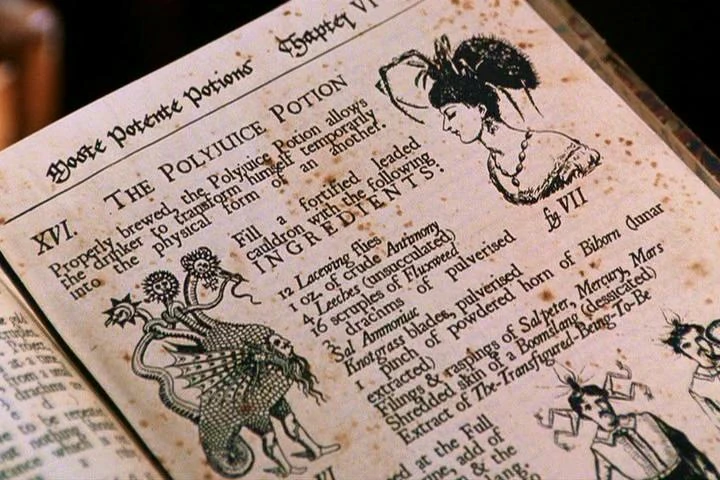 Moste Potente Potions Chapter VI
XVI. THE POLYJUICE POTION
Properly brewed, the Polyjuice Potion allows
the drinker to transform himself temporarily
into the physical form of an another.
Fill a fortified leaded
cauldron with the following
INGREDIENTS:
12 Lacewing flies
1 oz. of crude Antimony
4 Leeches (unsucculated)
16 scruples of Fluxweed
3 drachms of pulverised
Sal Ammoniac
Knotgrass blades, pulverised
1 pinch of powdered horn of Bihorn (lunar
extracted)
Filings & raspings of Salpeter, Mercury, Mars
Shredded skin of a Boomslang (dessicated)
Extract of The-Transfigured-Being-To-Be
fig VII
VI
at the Full
add of
& the